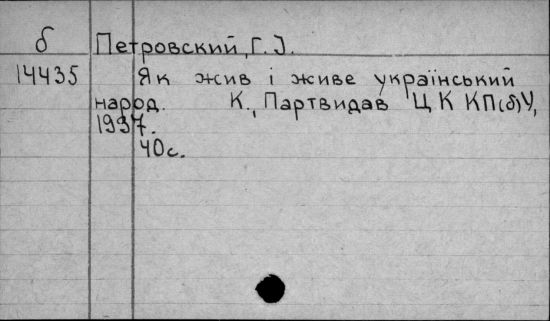 б Петровский, Г. І.
14435 Як жив і живе український
народ. К., Партвидав ЦК КП(б)У,
1937.
40с.